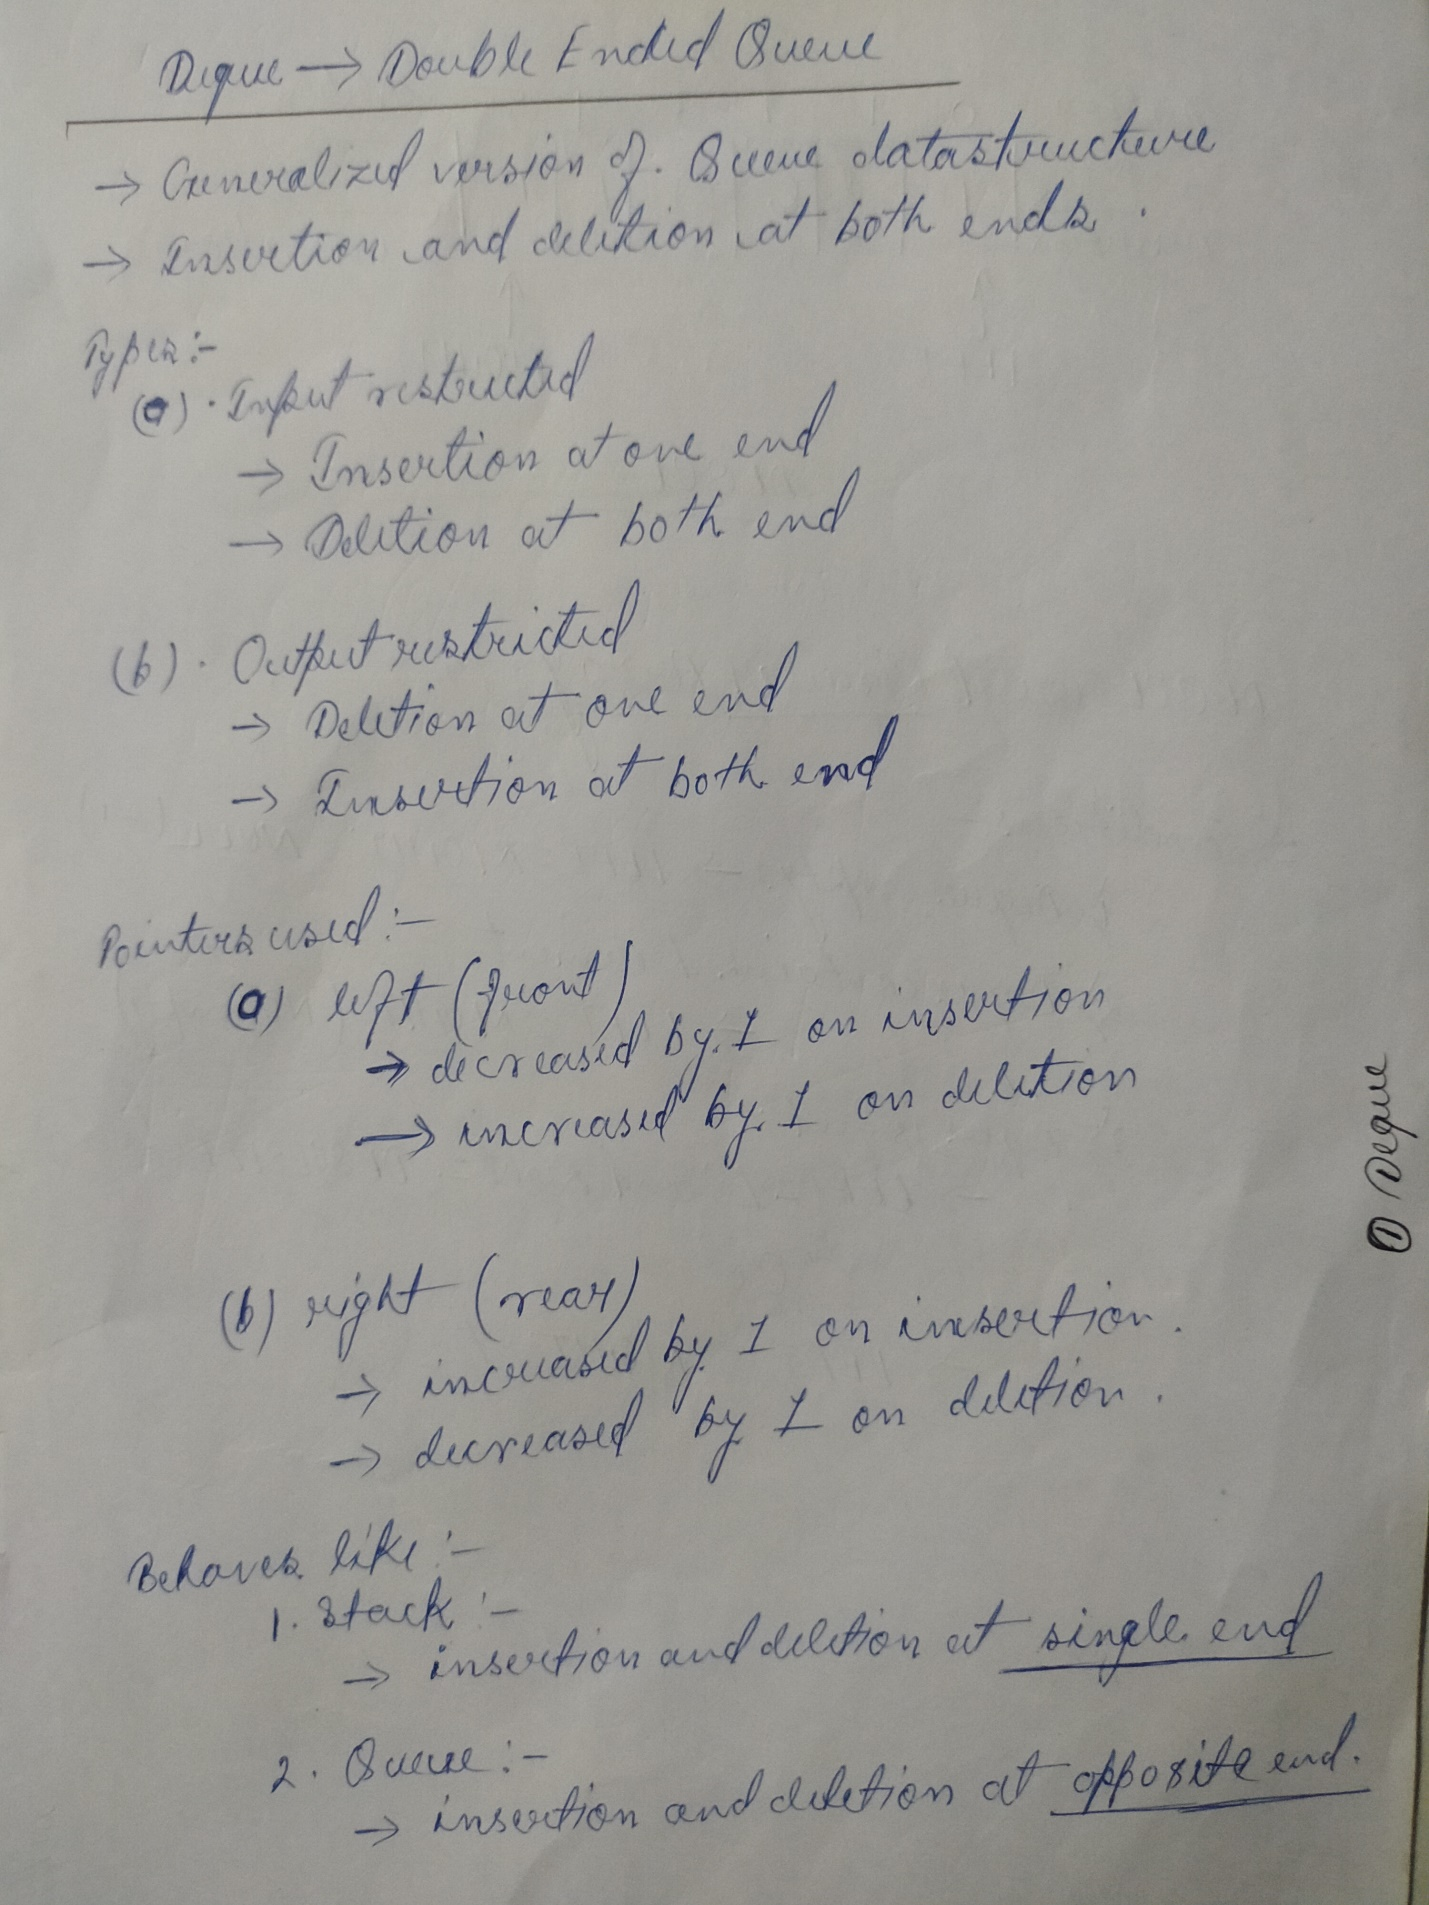 Deque → Double Ended Queue
→ Generalized version of. Queue datastructure
→ Insertion and deletion at both ends.
Types:-
(a). Input restricted
→ Insertion at one end
→ Deletion at both end
(b). Output restricted
→ Deletion at one end
→ Insertion at both end
Pointers used :-
(a) left (front)
→ decreased by. 1 on insertion
→ increased by. 1 on deletion
(b) right (rear)
→ increased by 1 on insertion.
→ decreased by 1 on deletion.
Behaves like :-
1. Stack :-
→ insertion and deletion at single end
2. Queue :-
→ insertion and deletion at opposite end.
① Deque